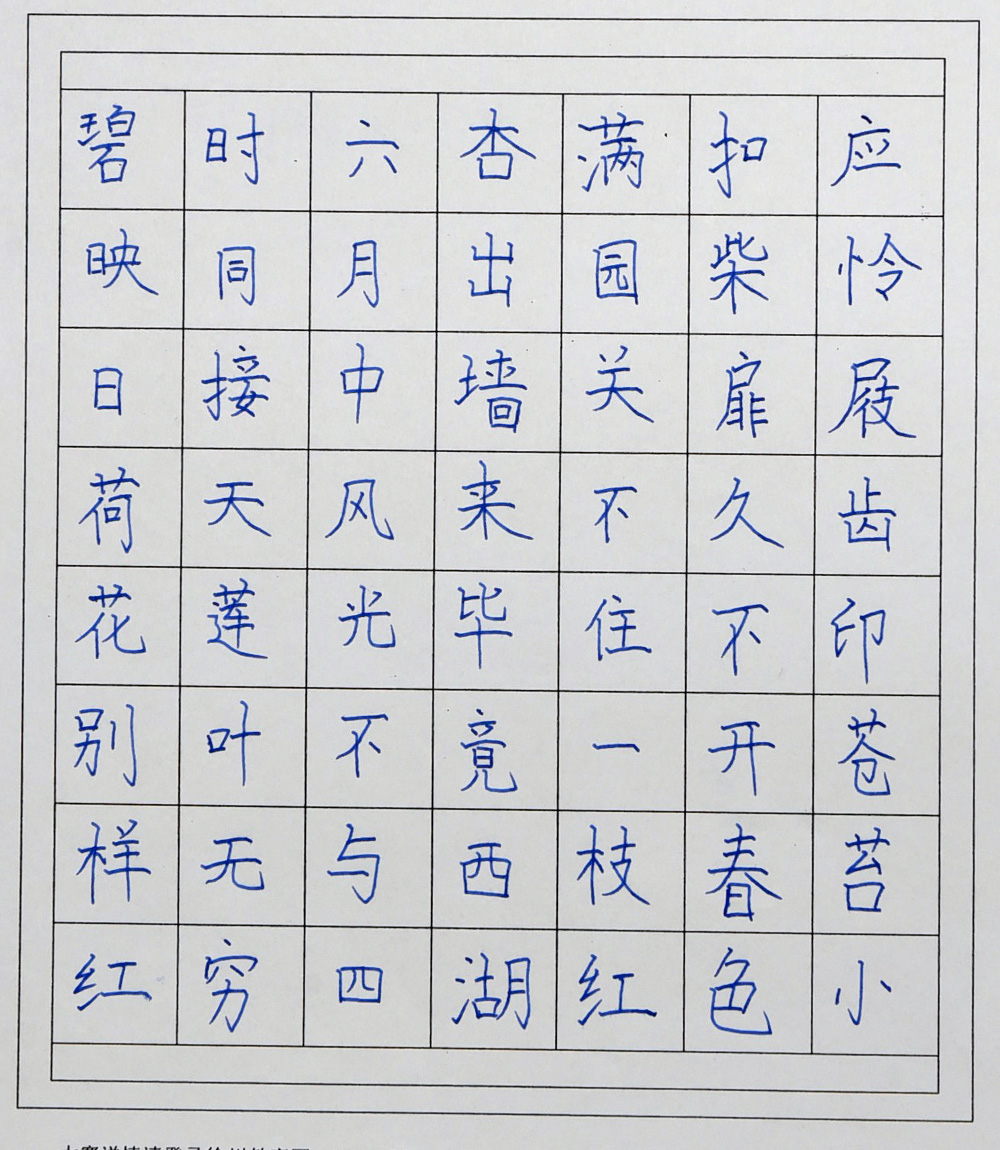 应怜屐齿印苍苔小
扣柴扉久不开春色
满园关不住一枝红
杏出墙来毕竟西湖
六月中风光不与四
时同接天莲叶无穷
碧映日荷花别样红